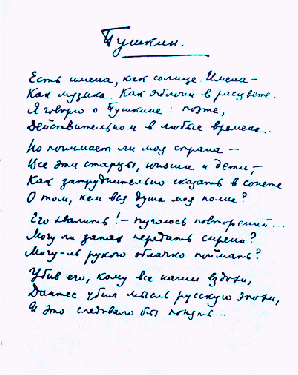 Пушкин.
Есть имена, как солнце! Имена –
Как музыка! Как яблоня в расцвете!
Я говорю о Пушкине: поэте,
Действительном в любые времена..
Но понимает ли моя страна –
Все эти старцы, юноши и дети, –
Как затруднительно сказать в сонете
О том, кем вся душа моя полна?
Его хвалить! – пугаюсь повторений...
Могу ли запах передать сирени?
Могу-ль рукою облачко поймать?
Убив его, кому все наши вздохи,
Дантес убил мысль русскую эпохи,
И это следовало бы понять...